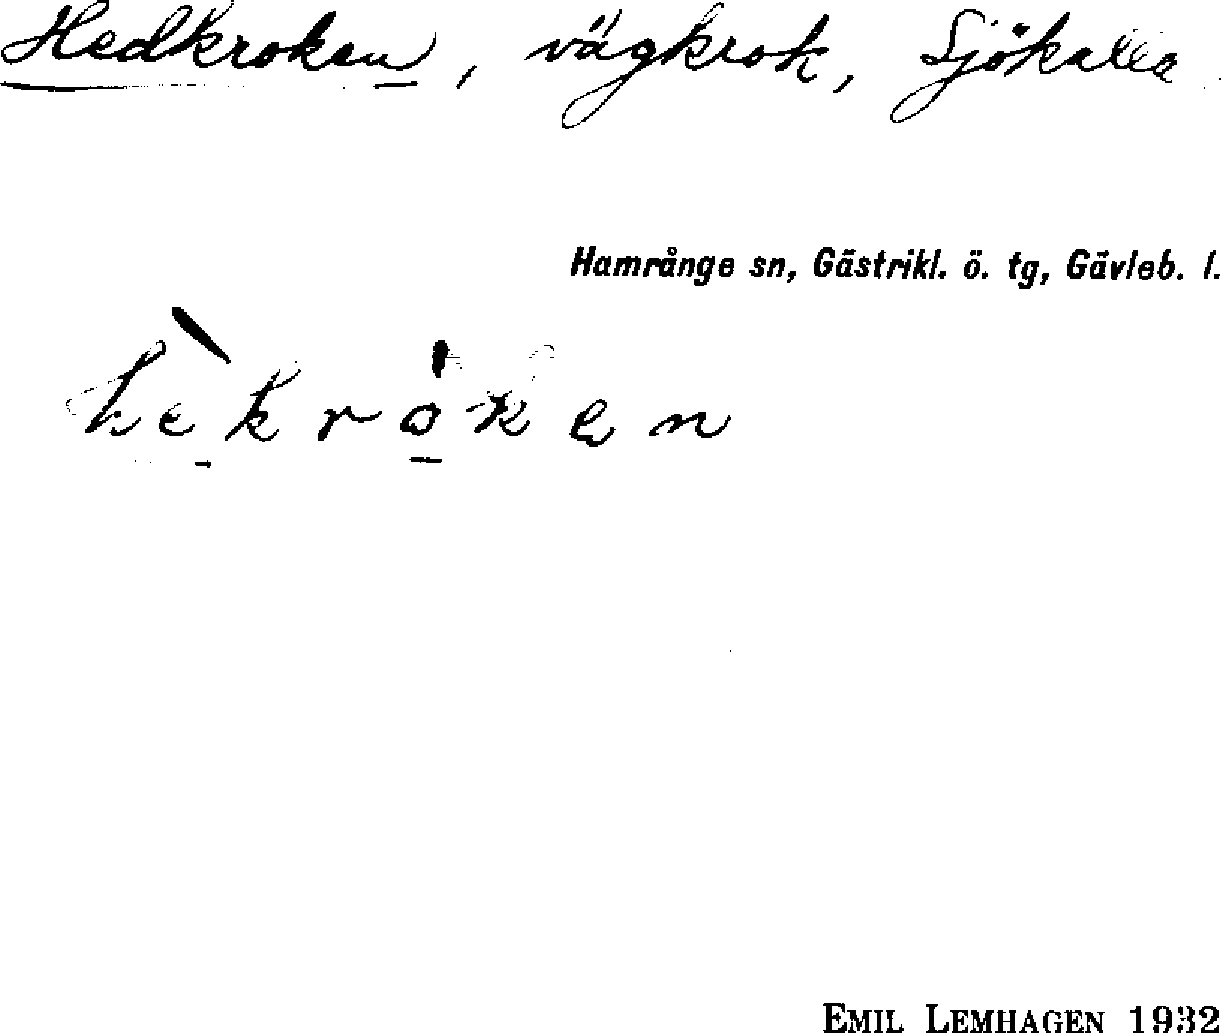 Hedkroken, vägkrok, Sjökalla
Hamrånge sn, Gästrikl. ö. tg, Gävleb. l.
hèkròken
EMIL LEMHAGEN 1932